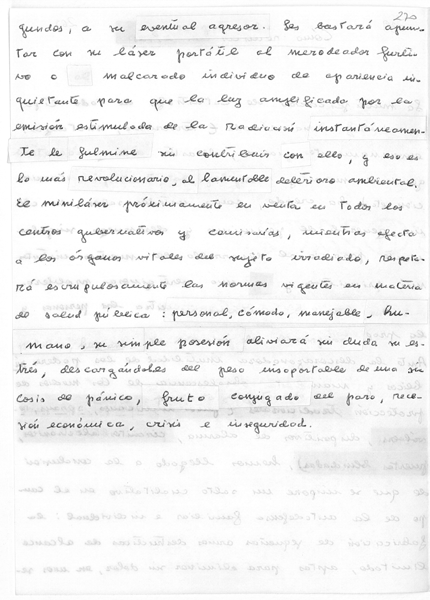 270
gundos, a su eventual agresor. Les bastará apun-
tar con su láser portátil al merodeador furti-
vo o malcarado individuo de apariencia in-
quietante para que la luz amplificada por la
emisión estimulada de la radiación instantáneamen-
te le fulmine sin contribuir con ello, y eso es
lo más revolucionario, al lamentable deterioro ambiental.
El miniláser próximamente en venta en todos los
centros gubernativos y comisarías, mientras afecta
a los órganos vitales del sujeto irradiado, respeta-
rá escrupulosamente las normas vigentes en materia
de salud pública: personal, cómodo, manejable, hu-
mano, su simple posesión aliviará sin duda su es-
trés, descargándoles del peso insoportable de una si-
cosis de pánico, fruto conjugado del paro, rece-
sión económica, crisis e inseguridad.